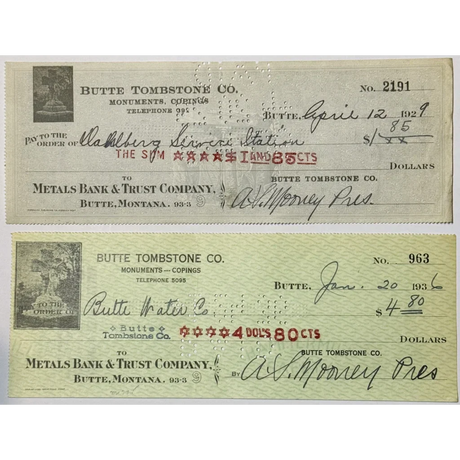 BUTTE TOMBSTONE CO.
MONUMENTS, COPINGS
TELEPHONE 395
No. 2191
BUTTE, April 12 1929
PAY TO THE ORDER OF Wahlberg Service Station $1 85/xx
THE SUM ★★★★$1 AND 85 CTS
DOLLARS
TO
METALS BANK & TRUST COMPANY,
BUTTE, MONTANA. 93-3
BUTTE TOMBSTONE CO.
A.S. Mooney Pres.
BUTTE TOMBSTONE CO.
MONUMENTS — COPINGS
TELEPHONE 5095
No. 963
BUTTE, Jan. 20 1936
PAY TO THE ORDER OF Butte Water Co $4 80
Butte
Tombstone Co.
★★★★4 DOL'S 80 CTS
DOLLARS
TO
METALS BANK & TRUST COMPANY,
BUTTE, MONTANA. 93-3
BUTTE TOMBSTONE CO.
BY A.S. Mooney Pres